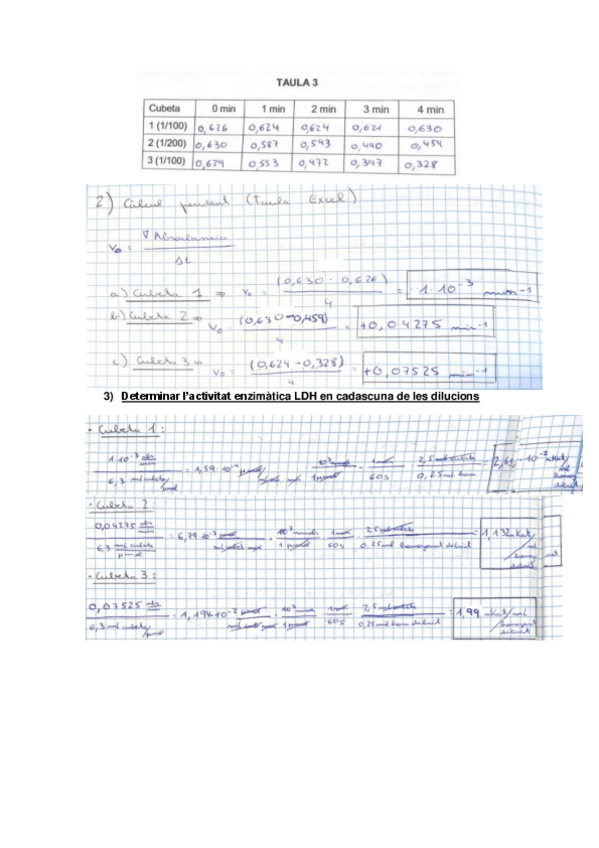 TAULA 3
Cubeta 0 min 1 min 2 min 3 min 4 min
1 (1/100) 0,626 0,624 0,624 0,621 0,630
2 (1/200) 0,630 0,587 0,543 0,490 0,459
3 (1/100) 0,629 0,553 0,472 0,397 0,328
2) Càlcul pendent (Taula Excel)
V₀ = ∇ Absorbancia / Δt
a) Cubeta 1 ⇒ V₀ = (0,630 - 0,626) / 4 = 1·10⁻³ min-1
b) Cubeta 2 ⇒ V₀ = (0,630-0,459) / 4 = +0,04275 min-1
c) Cubeta 3 ⇒ V₀ = (0,624 - 0,328) / 4 = +0,07525 min-1
3) Determinar l'activitat enzimàtica LDH en cadascuna de les dilucions
· Cubeta 1:
1·10⁻³ abs/min / 6,3 ml cubeta/µmol = 1,59·10⁻⁴ · 10³ nmols / 1 µmol · 1min / 60s · 2,5 ml cubeta / 0,25ml = 2,65·10⁻² nKat/ml
· Cubeta 2:
0,04275 abs/min / 6,3 ml cubeta/µmol = 6,79·10⁻³ · 10³ nmols / 1 µmol · 1min / 60s · 2,5 ml cubeta / 0,25ml homogenat diluit = 1,132 nKat/ml
· Cubeta 3:
0,07525 abs/min / 6,3 ml cubeta/µmol = 1,194·10⁻² · 10³ nmols / 1 µmol · 1min / 60s · 2,5 ml cubeta / 0,25 ml hom diluit = 1,99 nKat/ml homogenat diluit